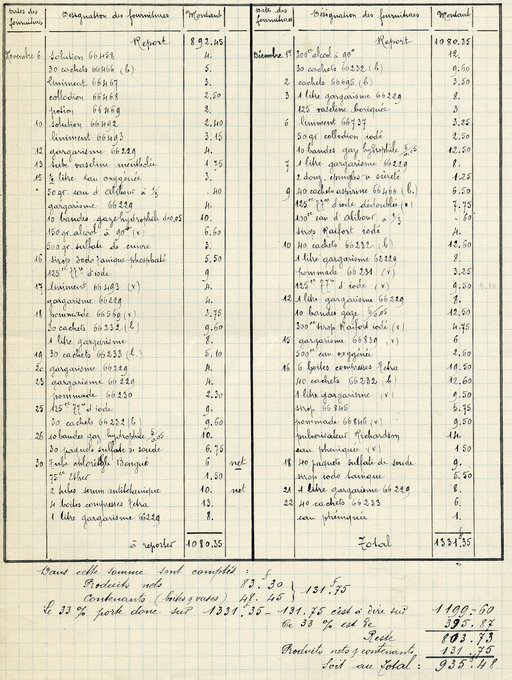 Dates des fournitures Désignation des fournitures Montant
Report 892.45
Novembre 6 Solution 66458 4.
30 cachets 66466 (b) 5.
liniment 66467
collodion 66468 2.50
potion 66469 2.
10 solution 66492 2.40
liniment 66493 3.15
12 gargarisme 66229 4.
13 tube vaseline mentholée 1.75
15 ½ litre eau oxygénée 3.
50 gr. eau d'Alibour à ⅓ .40
gargarisme 66229 4.
10 bandes gaze hydrophile 10.
150 gr. alcool à 90° (v) 6.60
500 gr. sulfate de cuivre 3.
16 sirop Iodo Tanique phosphaté 5.50
125 d'iode 9
17 liniment 66493 (v) 4.
gargarisme 66229 4.
18 pommade 66569 (v) 3.75
30 cachets 66232 (b) 9.60
1 litre gargarisme 8.
19 30 cachets 66233 (b) 5.10
20 gargarisme 66229 4.
23 gargarisme 66229 4.
pommade 66230 2.30
25 125 d'iode 9.
30 cachets 66232 (b) 9.60
26 10 bandes gaz hydrophile 10.
30 paquets sulfate de soude 6.75
30 Tube chloréthyle Bengué 6 net
75 Ether 1.50
2 tubes serum antitétanique 10. net
4 boites compresses Tetra 13.
1 litre gargarisme 66229 8.
à reporter 1080.35
Date des fournitures Désignation des fournitures Montant
Report 1080.35
Décembre 1er 300 alcool à 90° 12.
30 cachets 66232 (b) 9.60
2 cachets 66695 (b) 3.50
3 1 litre gargarisme 66229 8.
125 vaseline boriquée 3.
6 liniment 66737 3.25
50 gr collodion iodé 2.50
10 bandes gaz hydrophile 12.50
7 1 litre gargarisme 66229 8.
2 douz. épingles de sûreté 1.25
9 40 cachets aspirine 66466 (b) 6.50
125 d'iode dédoublée (v) 7.75
100 eau d'Alibour à ⅓ .60
sirop Raifort iodé 4.
10 40 cachets 66232 (b) 12.60
1 litre gargarisme 66229 8.
pommade 66231 (v) 3.25
125 d'iode (v) 9.50
12 1 litre gargarisme 66229 8.
10 bandes gaze 12.50
300 sirop Raifort iodé (v) 4.75
15 gargarisme 66839 (v) 6
500 eau oxygénée 2.60
16 6 boites compresses Tetra 19.50
40 cachets 66232 (b) 12.60
1 litre gargarisme (v) 9.50
sirop 66845 5.75
pommade 66846 (v) 9.50
pulvérisateur Richardson 14.
eau phéniquée (v) 1.50
18 40 paquets sulfate de soude 9.
sirop iodo tanique 5.50
21 1 litre gargarisme 66229 8.
22 40 cachets 66233 6.
eau phéniquée 1.
Total 1331.35
Dans cette somme sont comptés :
Produits nets 83.30
Contenants (boites & vases) 48.45 } 131.75
Le 33 % porte donc sur 1331.35 - 131.75 c'est à dire sur 1199.60
Ce 33 % est de 395.87
Reste 803.73
Produits nets & contenants 131.75
Soit au Total : 935.48